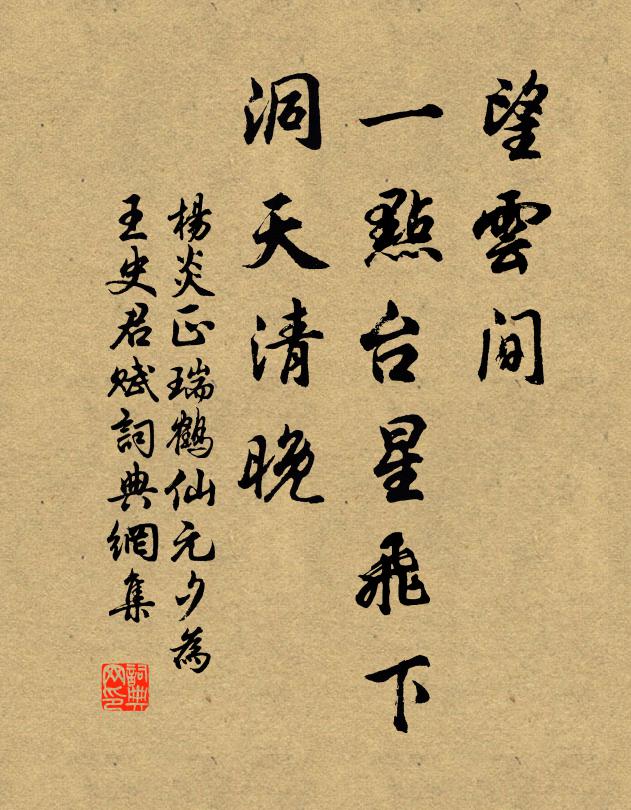 望雲間
一點台星飛下
洞天清晚
楊炎正瑞鶴仙元夕為
王史君賦詞典網集
詞典
网印